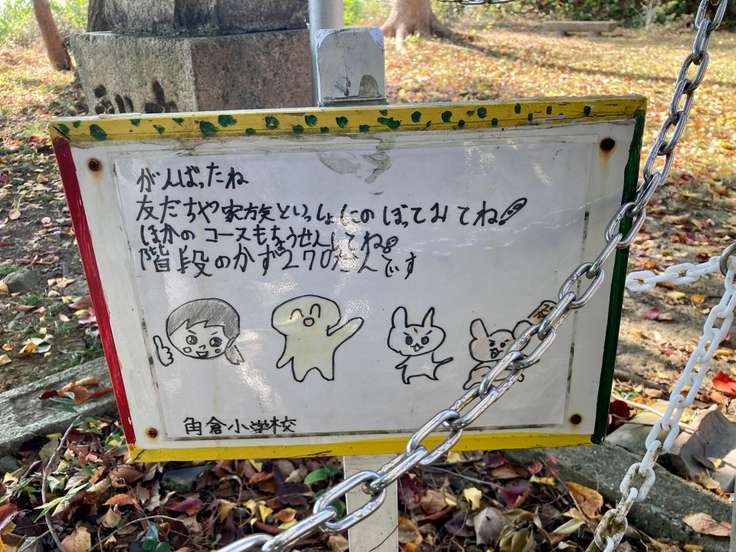 がんばったね
友だちや家族といっしょにのぼってみてね!
ほかのコースもちょうせんしてね!
階段のかず270だんです
角倉小学校